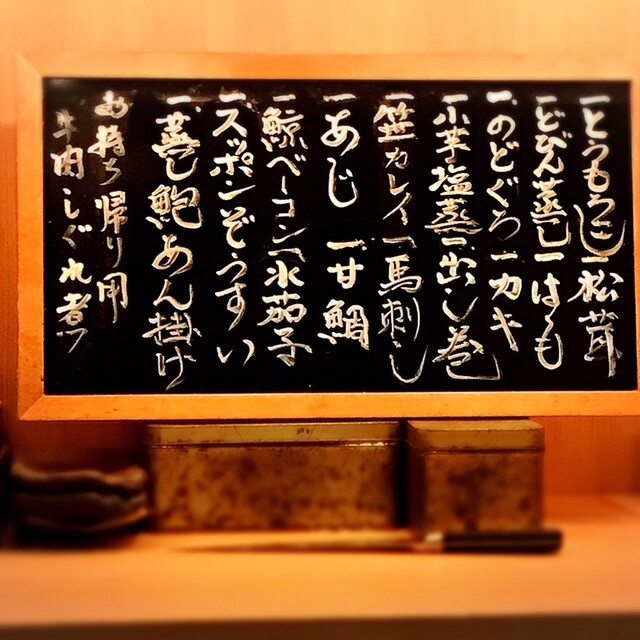 一とうもろこし 一松茸
一どびん蒸し 一はも
一のどぐろ 一カキ
一小芋塩蒸 一出し巻
一笹カレイ 一馬刺し
一あじ 一甘鯛
一鯨ベーコン 一水茄子
一スッポンぞうすい
一蒸し鮑あん掛け
お持ち帰り用
牛肉しぐれ煮